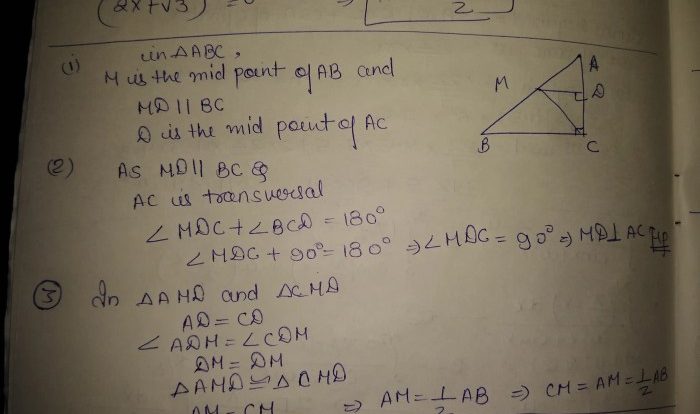 (2x+√3) = 0 ⇒
2
(1) in △ABC,
M is the mid point of AB and
MD || BC
D is the mid point of AC
A
M
D
B
C
(2) AS MD || BC &
AC is transversal
∠MDC + ∠BCD = 180°
∠MDC + 90° = 180° ⇒ ∠MDC = 90° ⇒ MD ⊥ AC HP
(3) In △AMD and △CMD
AD = CD
∠ADM = ∠CDM
DM = DM
△AMD ≅ △CMD
AM = CM ⇒ AM = 1/2 AB ⇒ CM = AM = 1/2 AB